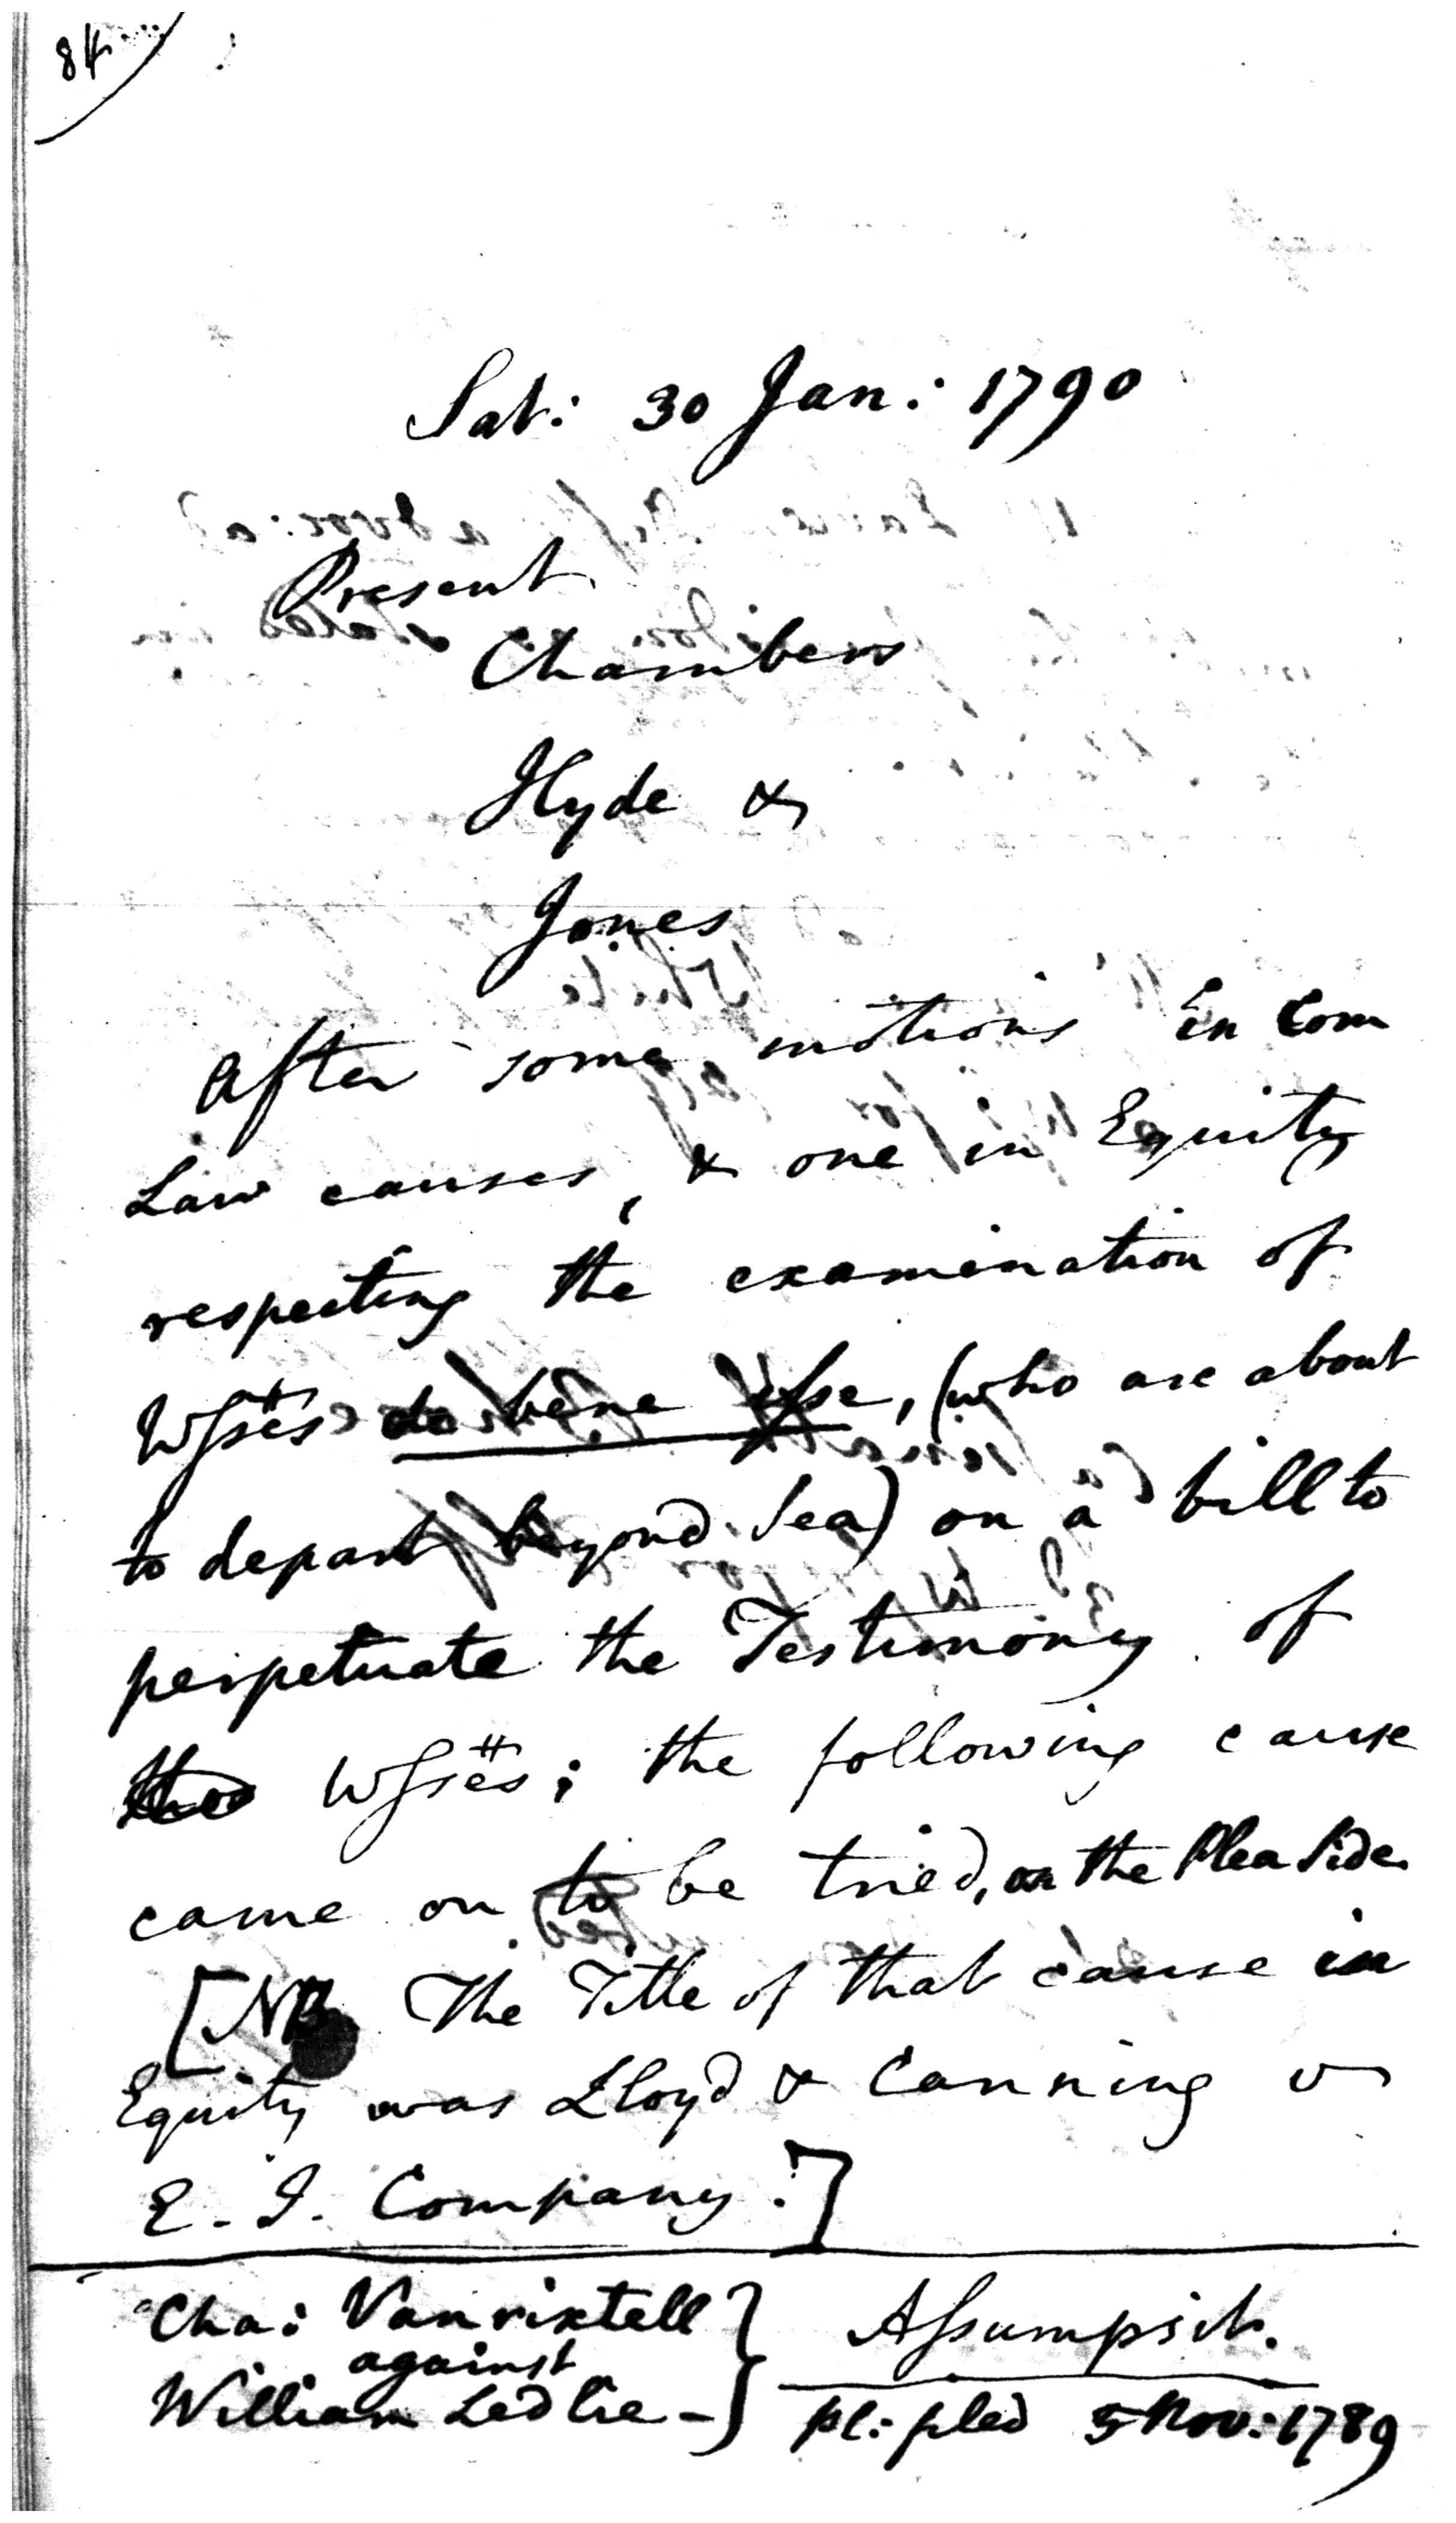 84
Sat: 30 Jan: 1790
Present
Chambers
Hyde &
Jones
After some motions in Com
Law causes, & one in Equity
respecting the examination of
Wſses de bene eſse, (who are about
to depart beyond Sea) on a bill to
perpetuate the Testimony of
the Wſses; the following cause
came on to be tried, on the Plea Side.
[NB The Title of that cause in
Equity was Lloyd & Canning v
E. I. Company.]
Cha: Vanrixtell
against
William Ledlie -
Aſsumpsit.
pl: pled 5 Nov: 1789